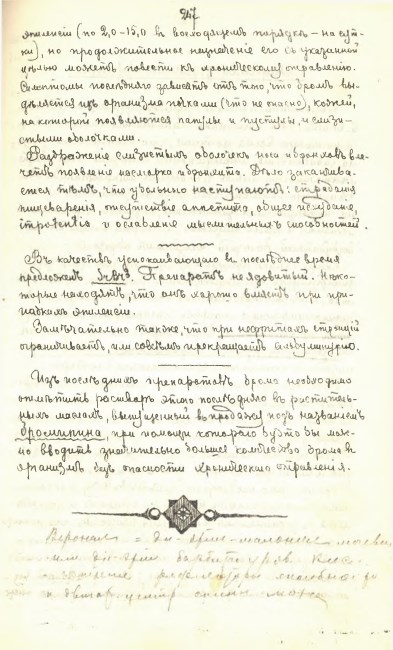 247
эпилепсіи (по 2,0–15,0 въ восходящемъ порядкѣ – на сут-
ки), но продолжительное назначеніе его съ указанной
цѣлью можетъ повести къ хроническому отравленію.
Симптомы послѣдняго зависятъ отъ того, что бромъ вы-
дѣляется изъ организма почками (что не опасно), кожей,
на которой появляются папулы и пустулы, и слизи-
стыми оболочками.
Раздраженіе слизистыхъ оболочекъ носа и бронховъ вле-
четъ появленіе насморка и бронхита. Дѣло заканчива-
ется тѣмъ, что у больного наступаютъ: страданія
пищеваренія, отсутствіе аппетита, общее исхуданіе,
и ослабленіе мыслительныхъ способностей.
Въ качествѣ успокаивающаго въ послѣднее время
предложенъ Препаратъ не ядовитый. Нѣко-
торые находятъ, что онъ хорошо вліяетъ при при-
падкахъ эпилепсіи.
Замѣчательно также, что при нефритахъ стронцій
ограничиваетъ, или совсѣмъ прекращаетъ альбуминурію.
Изъ послѣднихъ препаратовъ брома необходимо
отмѣтить растворъ этого послѣдняго въ раститель-
ныхъ маслахъ, выпущенный въ продажу подъ названіемъ
бромипина, при помощи котораго будто бы мож-
но вводить значительно большее количество брома въ
организмъ безъ опасности хроническаго отравленія.
Вероналъ =